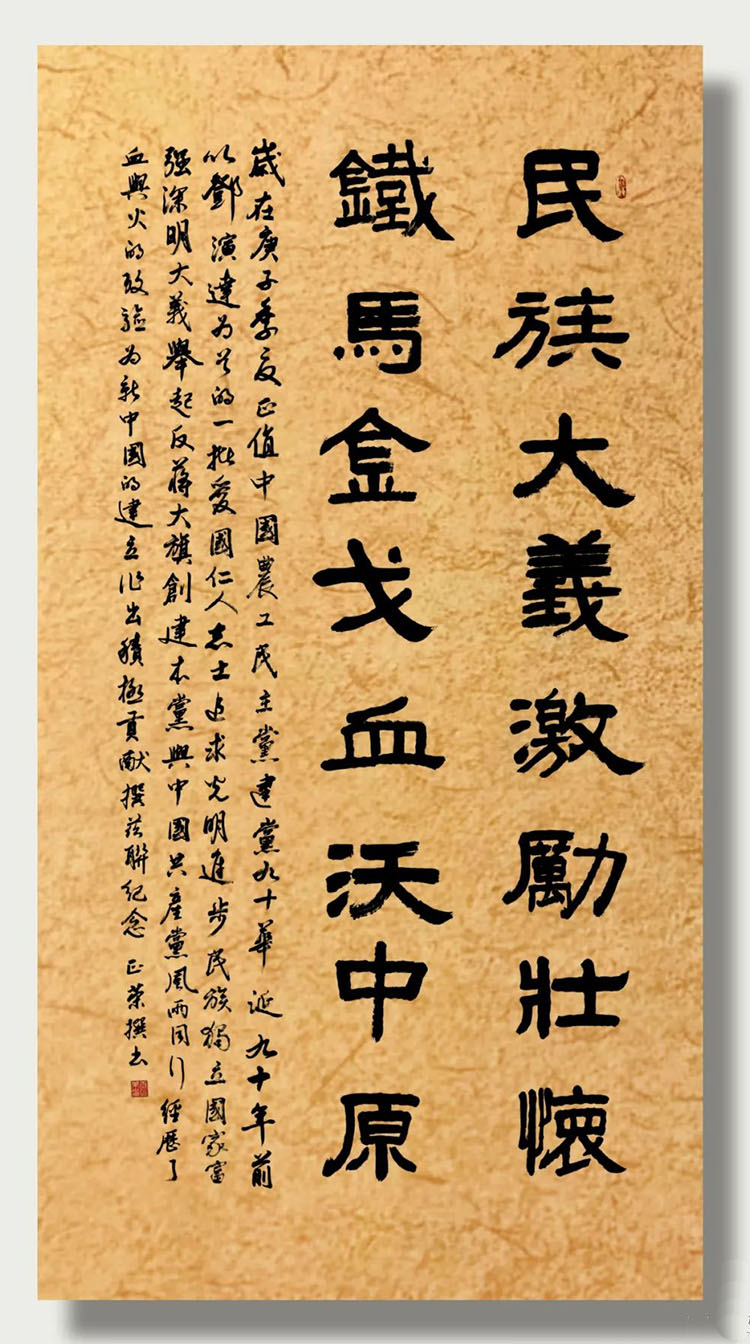 民族大義激勵壯懷
鐵馬金戈血沃中原
歲在庚子季夏正值中國農工民主黨建黨九十華誕九十年前
以鄧演達为首的一批愛國仁人志士追求光明進步民族獨立國家富
强深明大義舉起反蔣大旗創建本黨與中國共產黨風雨同行經歷了
血與火的考驗为新中國的建立作出積極貢献撰茲聯紀念正榮撰书